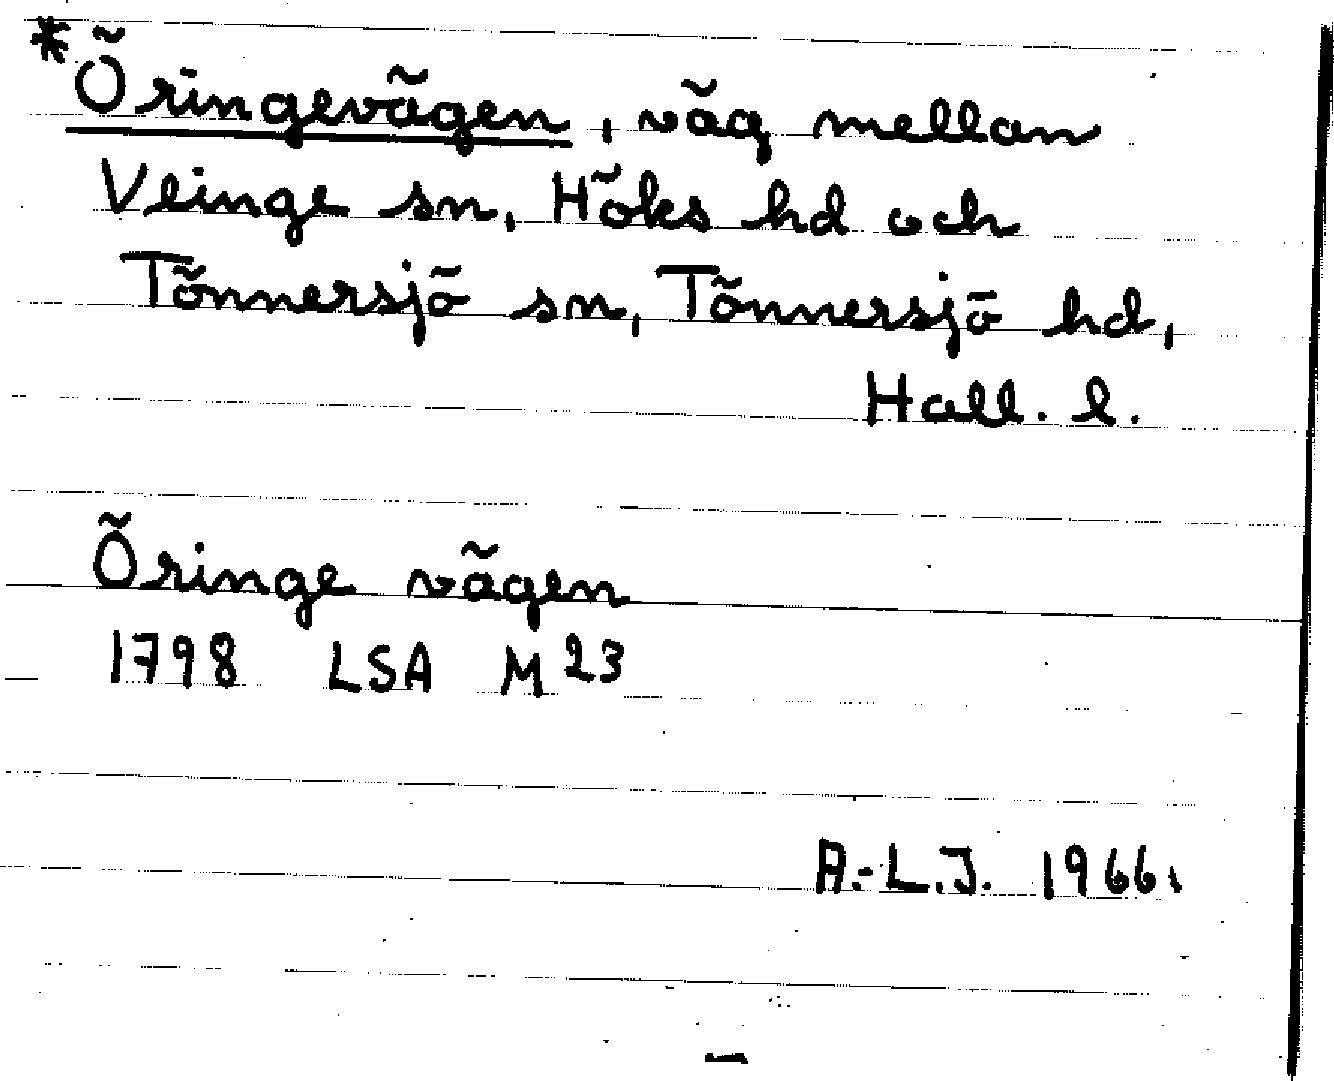 *Öringevägen, väg mellan
Veinge sn, Höks hd och
Tönnersjö sn, Tönnersjö hd,
Hall. l.
Öringe vägen
1798 LSA M23
A.-L.J. 1966.